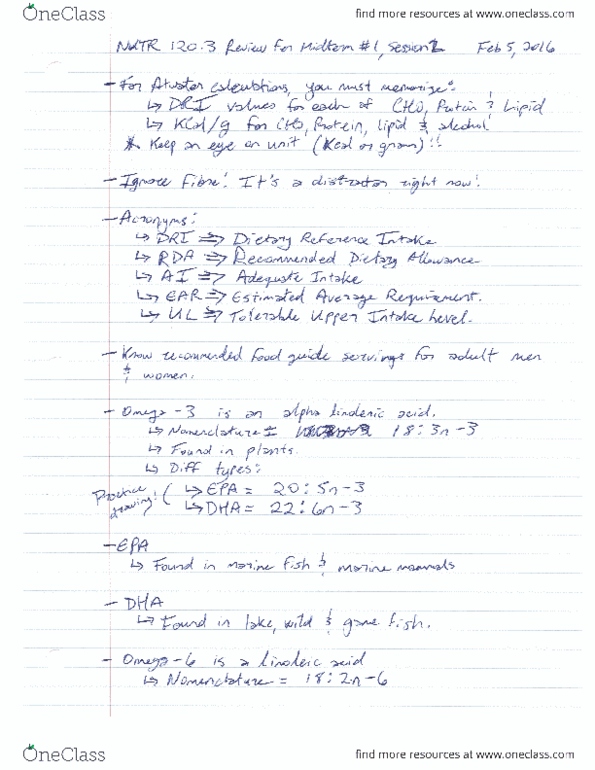 OneClass find more resources at www.oneclass.com
NUTR 120.3 Review for Midterm #1, Session 2 Feb 5, 2016
- For Atwater calculations, you must memorize:
↳ DRI values for each of CHO, Protein & Lipid
↳ Kcal/g for CHO, Protein, lipid & alcohol
* Keep an eye on unit (Kcal or gram)!!
- Ignore Fibre! It's a distractor right now!
- Acronyms:
↳ DRI ⇒ Dietary Reference Intake
↳ RDA ⇒ Recommended Dietary Allowance
↳ AI ⇒ Adequate Intake
↳ EAR ⇒ Estimated Average Requirement.
↳ UL ⇒ Tolerable Upper Intake Level.
- Know recommended food guide servings for adult men
& women.
- Omega-3 is an alpha linolenic acid.
↳ Nomenclature = 18:3n-3
↳ Found in plants.
↳ Diff types:
Practice drawing! ( ↳ EPA = 20:5n-3
↳ DHA = 22:6n-3
- EPA
↳ Found in marine fish & marine mammals
- DHA
↳ Found in lake, wild & game fish.
- Omega-6 is a linoleic acid
↳ Nomenclature = 18:2n-6
OneClass find more resources at www.oneclass.com